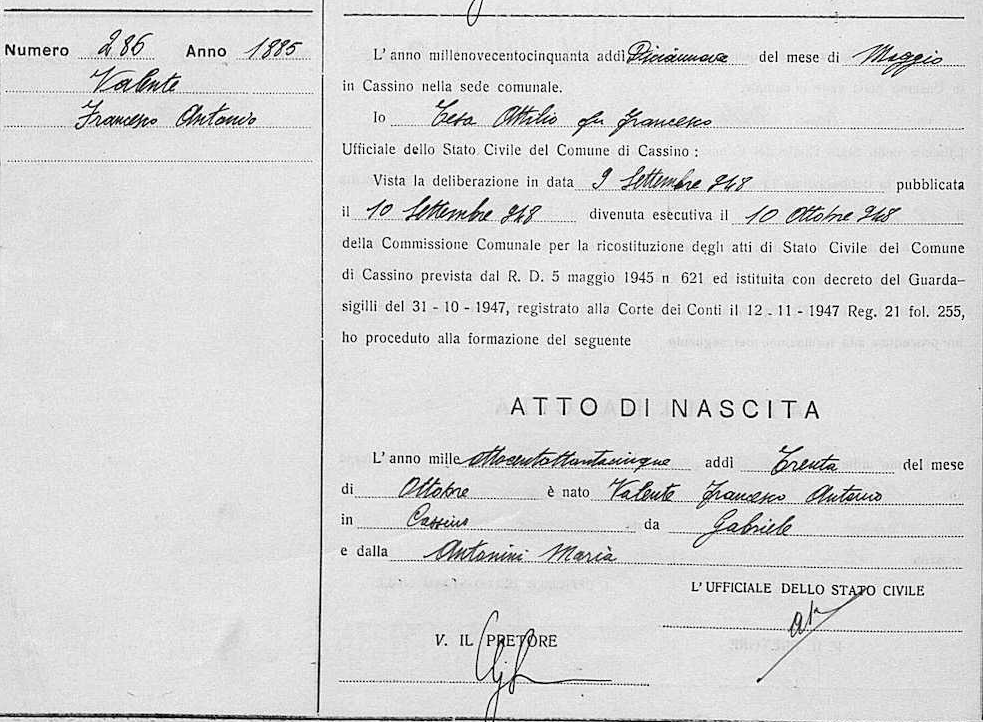 Numero 286 Anno 1885
Valente
Francesco Antonio
L'anno millenovecentocinquanta addì Diciannove del mese di Maggio
in Cassino nella sede comunale.
Io Tesa Attilio fu Francesco
Ufficiale dello Stato Civile del Comune di Cassino :
Vista la deliberazione in data 9 Settembre 948 pubblicata
il 10 Settembre 948 divenuta esecutiva il 10 Ottobre 948
della Commissione Comunale per la ricostituzione degli atti di Stato Civile del Comune
di Cassino prevista dal R. D. 5 maggio 1945 n 621 ed istituita con decreto del Guarda-
sigilli del 31 - 10 - 1947, registrato alla Corte dei Conti il 12 - 11 - 1947 Reg. 21 fol. 255,
ho proceduto alla formazione del seguente
ATTO DI NASCITA
L'anno mille ottocentottantacinque addì Trenta del mese
di Ottobre è nato Valente Francesco Antonio
in Cassino da Gabriele
e dalla Antonini Maria
L'UFFICIALE DELLO STATO CIVILE
V. IL PRETORE